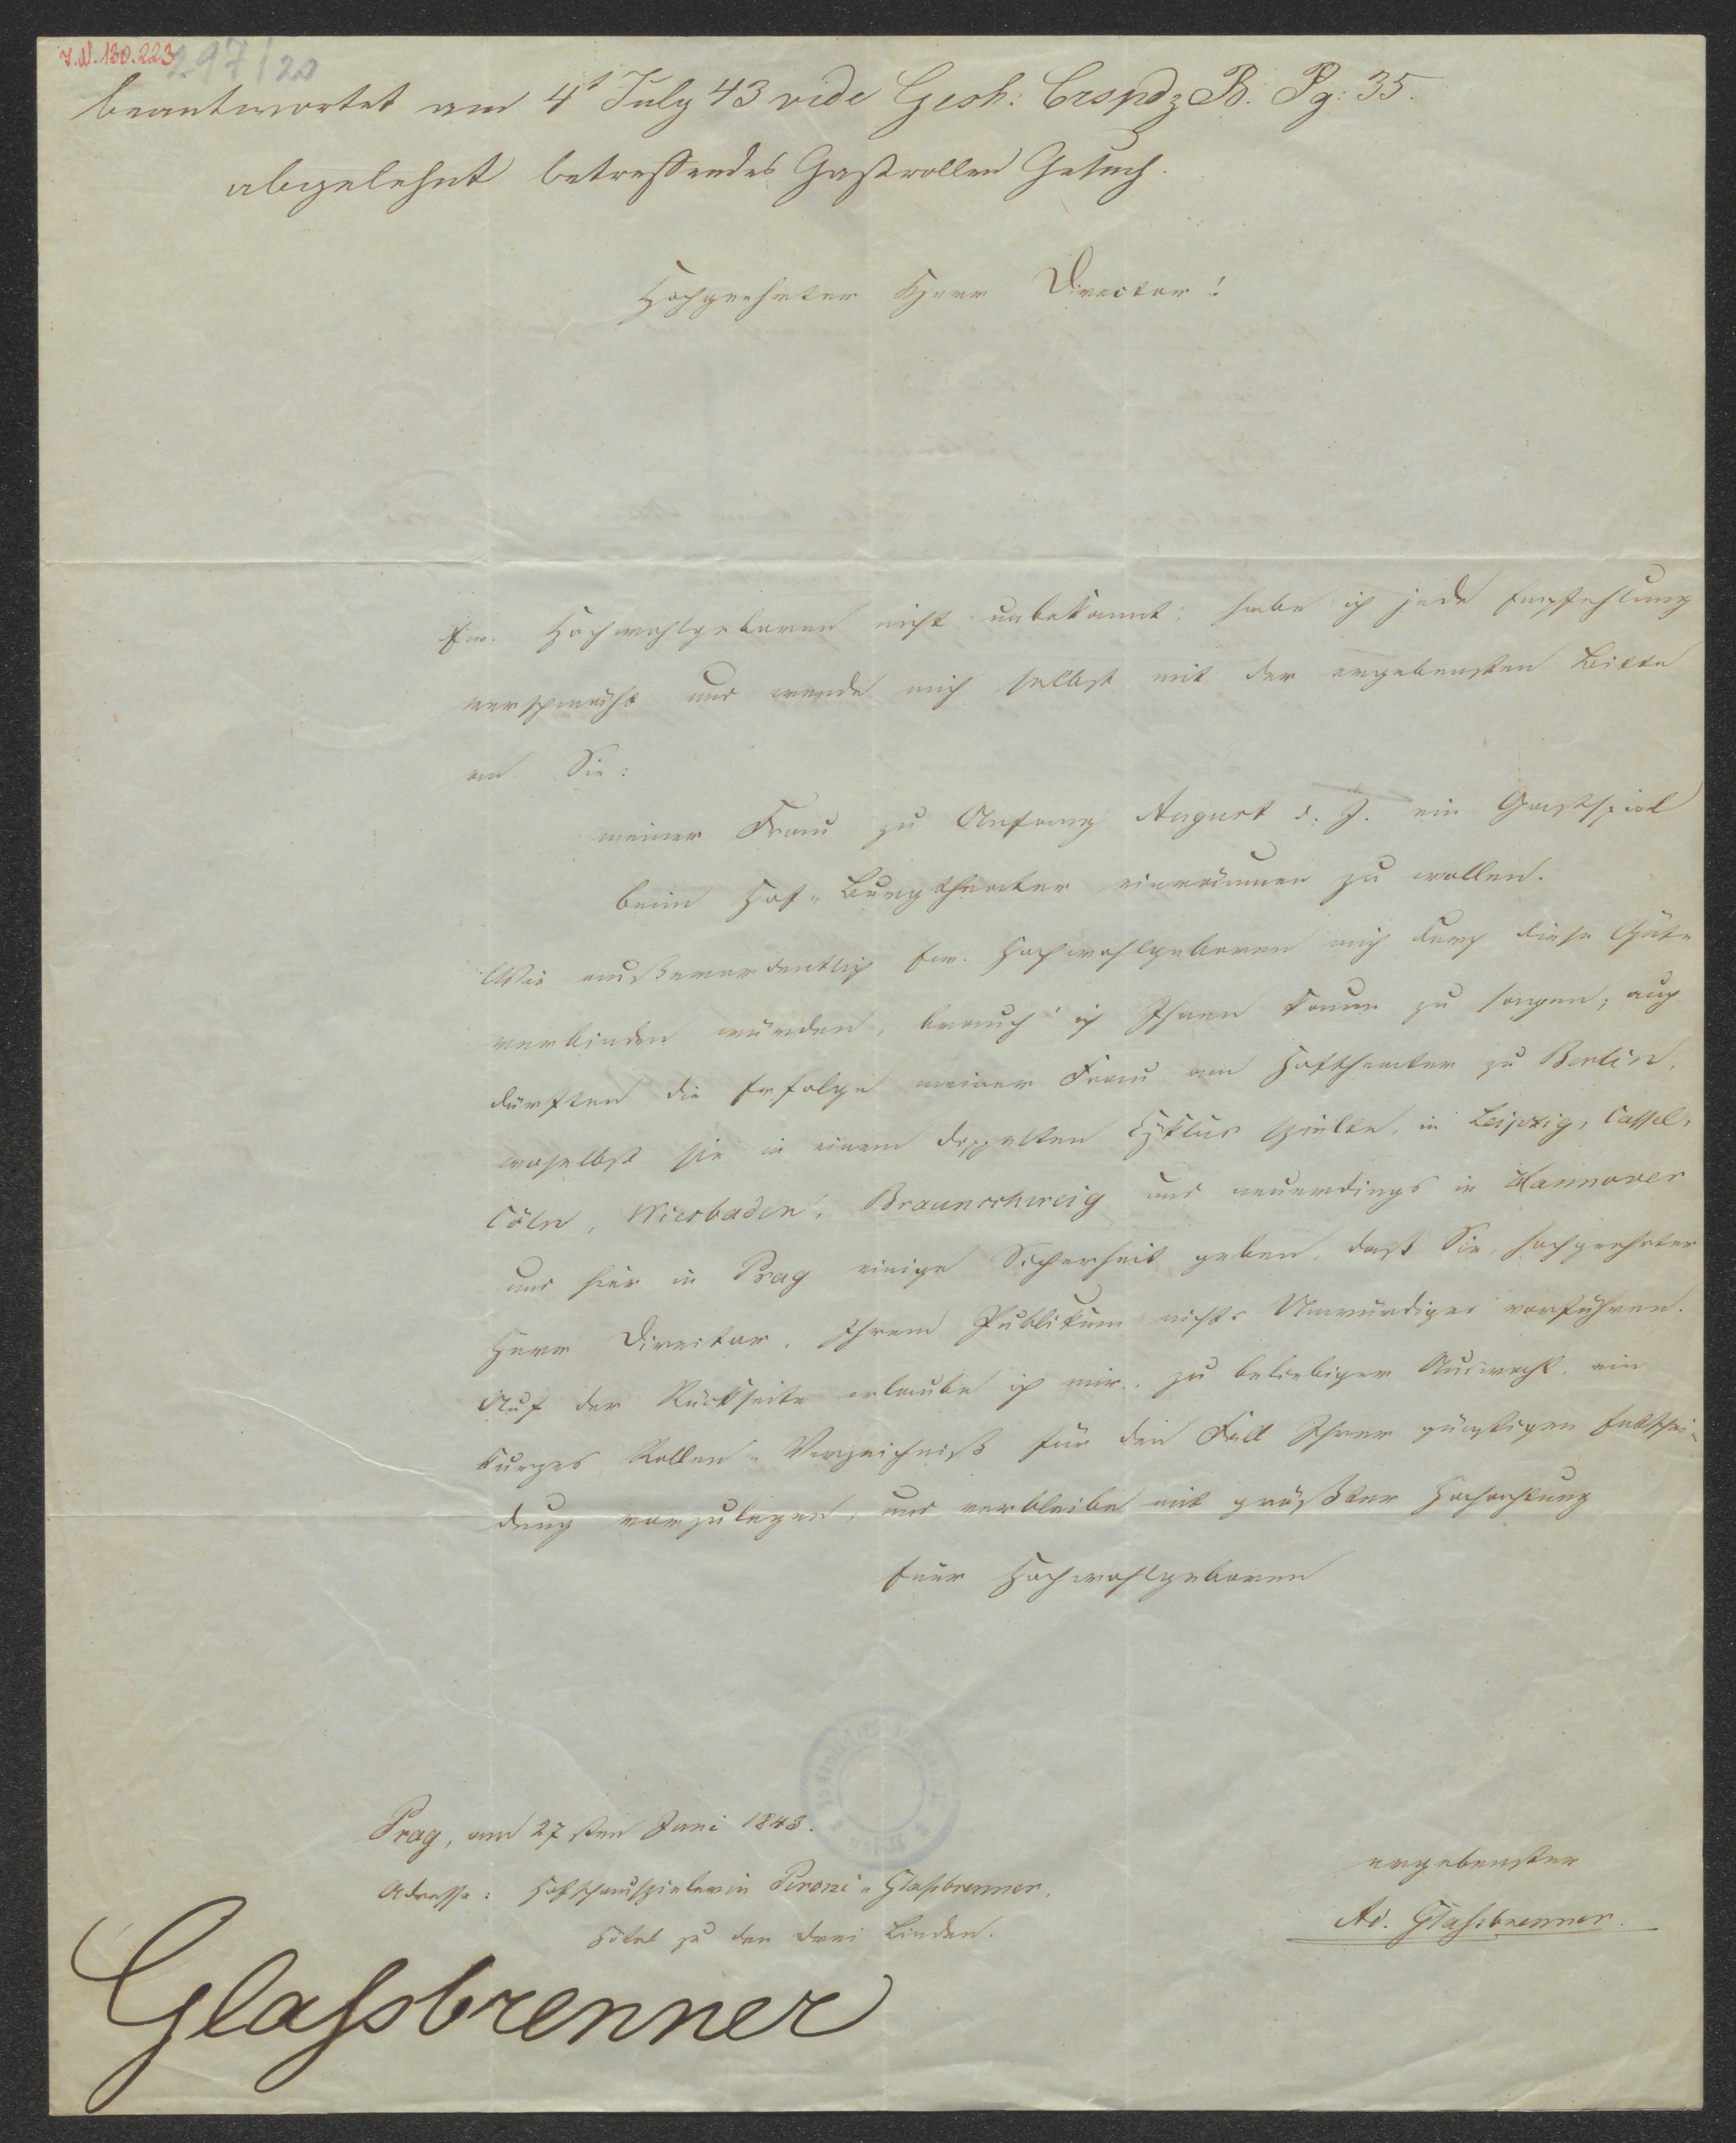 I.N. 130.223
297/20
beantwortet am 4t July 43 vide Gesh: Crspdz B. Pg: 35.
abgelehnt betreffendes Gastrollen Gesuch.
Hochgeehrter Herr Director!
Ew. Hochwohlgeboren nicht unbekannt, habe ich jede Empfehlung
verschmäht und wende mich selbst mit der ergebensten Bitte
an Sie:
meiner Frau zu Anfang August d. J. ein Gastspiel
beim Hof-Burgtheater einräumen zu wollen.
Wie außerordentlich Ew. Hochwohlgeboren mich durch diese Güte
verbinden würden, brauch' ich Ihnen kaum zu sagen; auch
dürften die Erfolge meiner Frau am Hoftheater zu Berlin,
woselbst sie in einem doppelten Cyklus spielte, in Leipzig, Cassel,
Cöln, Wiesbaden, Braunschweig und neuerdings in Hannover
und hier in Prag einige Sicherheit geben, daß Sie, hochgeehrter
Herr Director, Ihrem Publikum nichts Unwürdiges vorführen.
Auf der Rückseite erlaube ich mir, zu beliebiger Auswahl, ein
kurzes Rollen-Verzeichniß für den Fall Ihrer günstigen Entschei-
dung vorzulegen, und verbleibe mit größter Hochachtung
Euer Hochwohlgeboren
Prag, am 27sten Juni 1843.
ergebenster
Adresse: Hofschauspielerin Peroni-Glaßbrenner,
Ad. Glaßbrenner.
Hôtel zu den drei Linden.
Glaßbrenner